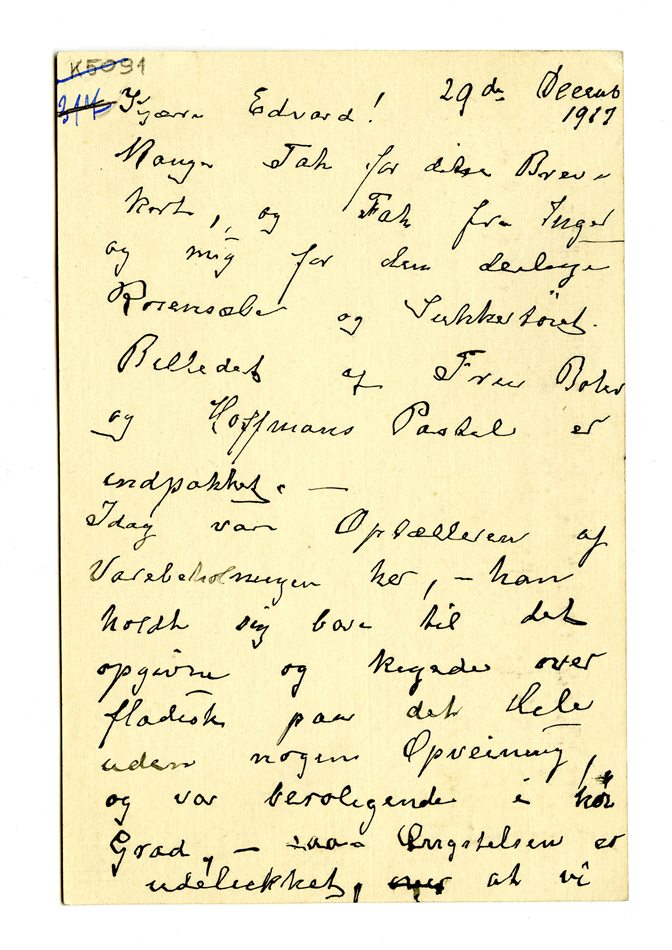 K5091
314
29de Decemb
1917
Kjære Edvard!
Mange Tak for disse Brev-
kort, og Tak fra Inger
og mig for den deilige
Rosensæbe og Sukkertöiet.
Billedet af Frue Boher
og Hoffmans Pastel er
indpakket. —
Idag var Optælleren af
Varebeholningen her, – han
holdt sig bare til det
opgivne og kigede over
fladisk paa det Hele
uden nogen Opveining,
og var beroligende i höi
Grad, – saa Engstelsen er
udelukket, at vi